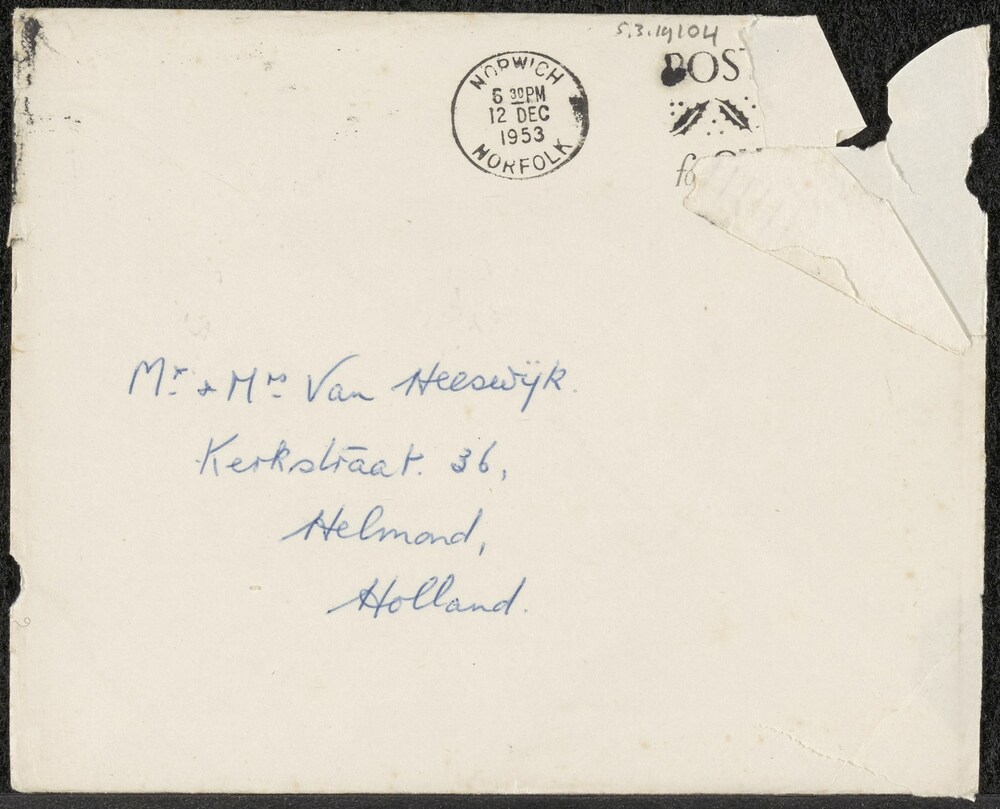 5.3.19104
NORWICH
6 30 PM
12 DEC
1953
NORFOLK
POS
Mr. + Mrs. Van Heeswijk.
Kerkstraat. 36,
Helmond,
Holland.